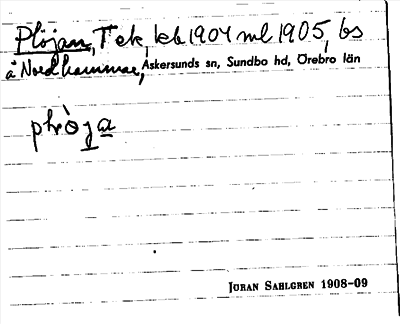 Plöjan, T ek, kb 1904 ml 1905, bs
å Nordhammar, Askersunds sn, Sundbo hd, Örebro län
plròja
JÖRAN SAHLGREN 1908-09